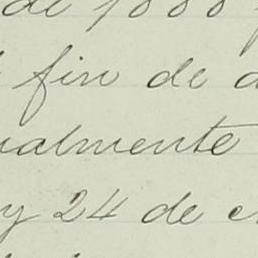 de 1888
fin de
ualmente
y 24 de